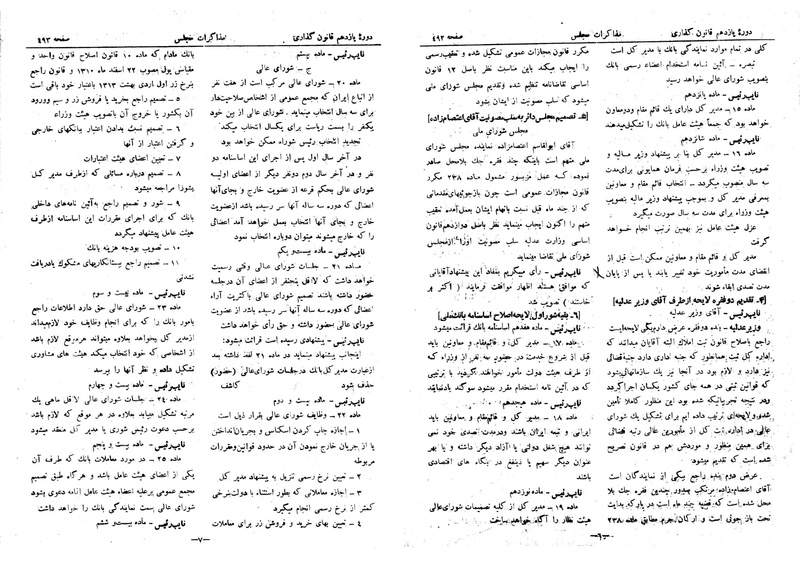 دورهٔ یازدهم قانون گذاری
مذاکرات مجلس
صفحه ۴۹۲
کلی در تمام موارد نمایندگی بانک با مدیر کل است
تبصره - آئین نامه استخدام اعضاء رسمی بانک
بتصویب شورای عالی خواهد رسید
نایب‌رئیس - ماده پانزدهم
ماده ۱۵- مدیر کل دارای یک قائم مقام ودومعاون
خواهد بود که جمعاً هیئت عامل بانک را تشکیل میدهند
نایب‌رئیس - ماده شانزدهم
ماده ۱۶ - مدیر کل بنا بر پیشنهاد وزیر مالیه و
تصویب هیئت وزراء برحسب فرمان همایونی برای مدت
سه سال منصوب میگردد - انتخاب قائم مقام و معاونین
بمعرفی مدیر کل و بموجب پیشنهاد وزیر مالیه بتصویب
هیئت وزراء برای مدت سه سال صورت میگیرد
عزل هیئت عامل نیز بهمین ترتیب انجام خواهد
گرفت
مدیر کل و قائم مقام و معاونین ممکن است قبل از
انقضای مدت مأموریت خود تغییر یابند یا پس از پایان
مدت تصدی ابقاء شوند
[۴- تقدیم دو فقره لایحه از طرف آقای وزیر عدلیه]
نایب‌رئیس - آقای وزیر عدلیه
وزیر عدلیه - بنده دو فقره عرض دارم یکی لایحه‌ایست
راجع باصلاح قانون ثبت املاک البته آقایان میدانند که
اداره کل ثبت همانطور که جنبه اداری دارد جنبهٔ قضائی
نیز دارد و لازم بود در آنجا نیز یک سازمانهائی شود
که قوانین ثبتی در همه جای کشور یکسان اجرا گردد
ودر نتیجه تجربیاتی که شده بود این منظور کاملاً تأمین
شده و لایحه‌ای ترتیب داده ایم برای تشکیل یک شورای
عالی در اداره ثبت کل از مأمورین عالی رتبه قضائی
برای همین منظور و موردش هم در قانون تصریح
شده است که تقدیم میشود
عرض دوم بنده راجع بیکی از نمایندگان است
آقای اعتصام‌زاده مرتکب چندین فقره چک بلا
محل شده است که قضیه چند ماه است در پارکه بدایت
تحت بازجوئی است و ارکان جرم مطابق ماده ۲۳۸
مکرر قانون مجازات عمومی تشکیل شده و تعقیب رسمی
را ایجاب میکند باین مناسبت نظر باصل ۱۲ قانون
اساسی تقاضانامه تنظیم شده وتقدیم مجلس شورای ملی
میشود که سلب مصونیت از ایشان بشود
[۵- تصمیم مجلس دائر به سلب مصونیت آقای اعتصام‌زاده]
مجلس شورای ملی
آقای ابوالقاسم اعتصام‌زاده نماینده مجلس شورای
ملی متهم است باینکه چند فقره چک بلامحل صادر
نموده که عمل مزبور مشمول ماده ۲۳۸ مکرر
قانون مجازات عمومی است چون بازجوئیهای مقدماتی
که از چند ماه قبل نسبت باتهام ایشان بعمل آمده تعقیب
متهم را اکنون ایجاب مینماید نظر باصل دوازدهم قانون
اساسی وزارت عدلیه سلب مصونیت اورا از مجلس
شورای ملی تقاضا مینماید
نایب‌رئیس - رأی میگیریم بمفاد این پیشنهاد آقایانی
که موافق هستند اظهار موافقت فرمایند ( اکثر بر
خاستند ) تصویب شد
[۶- بقیهٔ شور اول لایحه اصلاح اساسنامه بانک ملی]
نایب‌رئیس - ماده هفدهم اساسنامه بانک قرائت میشود
ماده ۱۷- مدیر کل و قائم مقام و معاونین باید
قبل از شروع خدمت در حضور سه نفر از وزراء که
از طرف هیئت دولت مأمور خواهند گردید با ترتیبی
که در آئین نامه استخدام مقرر میشود سوگند یاد نمایند
نایب‌رئیس - ماده هیجدهم
ماده ۱۸ - مدیر کل و قائم مقام و معاونین باید
ایرانی و تبعه ایران باشند ودر مدت تصدی خود نمی
توانند هیچ شغل دولتی یا آزاد دیگر داشته و یا بهر
عنوان دیگر سهیم یا ذینفع در بنگاه های اقتصادی
باشند
نایب‌رئیس - ماده نوزدهم
ماده ۱۹ - مدیر کل از کلیه تصمیمات شورای عالی
هیئت نظار را آگاه خواهد ساخت
-۶-
دورهٔ یازدهم قانون گذاری
مذاکرات مجلس
صفحه ۴۹۳
نایب‌رئیس - ماده بیستم
ج - شورای عالی
ماده ۲۰ - شورای عالی مرکب است از هفت نفر
از اتباع ایران که مجمع عمومی از اشخاص صلاحیت‌دار
برای سه سال انتخاب مینماید . شورای عالی از بین خود
یکنفر را بسمت ریاست برای یکسال انتخاب میکند
تجدید انتخاب رئیس شوراه ممکن خواهد بود
در آخر سال اول پس از اجرای این اساسنامه دو
نفر و در آخر سال دوم دونفر دیگر از اعضای اولیه
شورای عالی بحکم قرعه از عضویت خارج و بجای آنها
اعضائی که دوره سه ساله آنها سر رسیده باشد از عضویت
خارج و بجای آنها انتخاب بعمل خواهد آمد اعضائی
را که خارج میشوند میتوان دوباره انتخاب نمود
نایب‌رئیس - ماده بیست و یکم
ماده ۲۱ - جلسات شورای عالی وقتی رسمیت
خواهد داشت که لااقل پنجنفر از اعضای آن در جلسه
حضور داشته باشند تصمیم شورای عالی باکثریت آراء
اعضائی که دوره سه ساله آنها سر رسیده باشد از عضویت
شورای عالی حضور داشته و حق رأی خواهد داشت
نایب‌رئیس - پیشنهادی رسیده است قرائت میشود:
اینجانب پیشنهاد مینماید در ماده ۲۱ لفظ داشته بعد
از عبارت مدیر کل بانک در جلسات شورای عالی (حضور)
حذف بشود کاشف
نایب‌رئیس - ماده بیست و دوم
ماده ۲۲ - وظایف شورای عالی بقرار ذیل است
۱ - اجازه چاپ کردن اسکناس و بجریان انداختن
یا از جریان خارج نمودن آن در حدود قوانین ومقررات
مربوطه
۲ - تعیین نرخ رسمی تنزیل به پیشنهاد مدیر کل
۳ - اجازه معاملاتی که بطور استثناء با دولت بنرخی
کمتر از نرخ رسمی انجام میگیرد
۴ - تعیین بهای خرید و فروش زر برای معاملات
بانک مادام که ماده ۱۰ قانون اصلاح قانون واحد و
مقیاس پول مصوب ۲۲ اسفند ماه ۱۳۱۰ و قانون راجع
بنرخ زر اول اردی بهشت ۱۳۱۲ باعتبار خود باقی است
۵ - تصمیم راجع بخرید یا فروش زر و سیم وورود
آن بکشور یا خروج آن باتصویب هیئت وزراء
۶ - تصمیم نسبت بدادن اعتبار ببانکهای خارجی
و گرفتن اعتبار از آنها
۷ - تعیین اعضای هیئت اعتبارات
۸ - تصمیم درباره مسائلی که از طرف مدیر کل
بشورا مراجعه میشود
۹ - شور و تصمیم راجع به آئین نامه‌های داخلی
بانک که برای اجرای مقررات این اساسنامه از طرف
هیئت عامل پیشنهاد میگردد
۱۰ - تصویب بودجه هزینه بانک
۱۱ - تصمیم راجع ببستانکاریهای مشکوک یادریافت
نشدنی
نایب‌رئیس - ماده بیست و سوم
ماده ۲۳ - شورای عالی حق دارد اطلاعات راجع
بامور بانک را که برای انجام وظایف خود لازم بداند
از مدیر کل بخواهد بعلاوه میتواند هر موقع لازم باشد
از اشخاصی که خود انتخاب میکند هیئت های مشاوری
تشکیل داده و نظر آنها را بپرسد
نایب‌رئیس - ماده بیست و چهارم
ماده ۲۴ - جلسات شورای عالی لااقل ماهی یک
مرتبه تشکیل میباید بعلاوه در هر موقع که لازم باشد
برحسب دعوت رئیس شوری یا مدیر کل منعقد میشود
نایب‌رئیس - ماده بیست و پنجم
ماده ۲۵ - در مورد معاملات بانک که طرف آن
یکی از اعضاء هیئت عامل باشد و هرگاه طبق تصمیم
مجمع عمومی برعلیه اعضاء هیئت عامل اقامه دعوی بشود
شورای عالی بسمت نمایندگی بانک را خواهد داشت
نایب‌رئیس - ماده بیست و ششم
-۷-